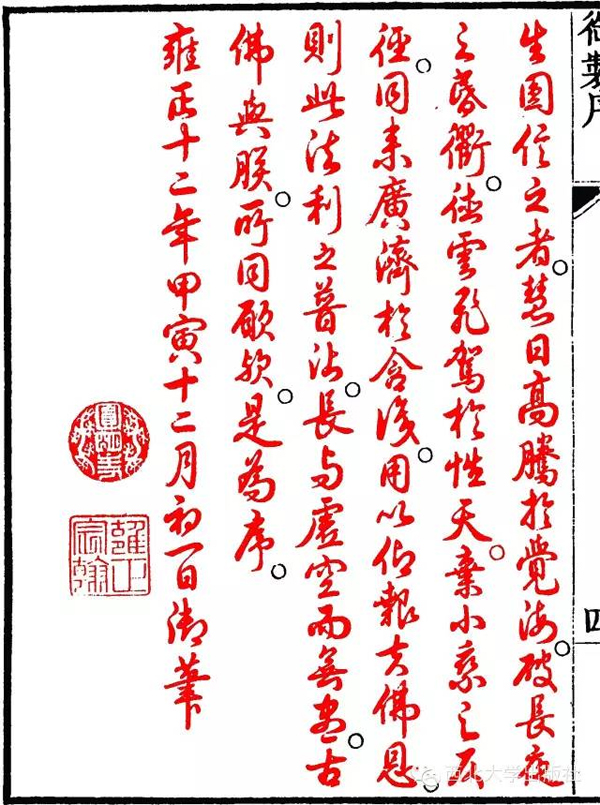 御製序
四
生圓信之者。慧日高騰於覺海。破長夜
之昏衢。德雲飛駕於性天。棄小乘之仄
徑。同來廣濟於含識。用以仰報佛恩。
則此法利之普沾。長與虛空而無盡。古
佛與朕。所同願歟。是為序。
雍正十二年甲寅十二月初一日御筆
雍正宸翰
西北大学出版社